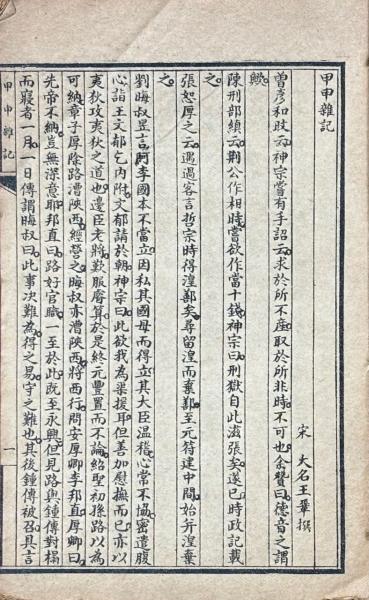 甲申雜記
宋　大名王鞏撰
曾彥和旼云神宗嘗有手詔云求於所不產取於所非時不可也余贊曰德音之謂
歟
陳刑部縝云荆公作相時嘗欲作當十錢神宗曰刑獄自此滋張矣遂已時政記載
之
張恕厚之云遇過客言哲宗時得湟鄯矣尋留湟而棄鄯至元符建中間始并湟棄
之
劉晦叔昱言阿李國本不當立因私其國母而得立其大臣溫稽心常不協密遣腹
心詣王文郁乞內附文郁請於朝神宗曰此欲我為渠援耳但善加慰撫而已亦以
夷狄攻夷狄之道也邊臣老將歎服睿算於是終元豐置而不論紹聖初孫路以為
可納章子厚除路漕陝西經營之晦叔亦漕陝西將西行問安厚卿李邦直厚卿曰
先帝不納豈無深意耶邦直曰路好官職一至於此既至永興但見路與鍾傳對榻
而寢者一月一日傳謂晦叔曰此事次難為得之易守之難也其後鍾傳被召具言
甲申雜記
一